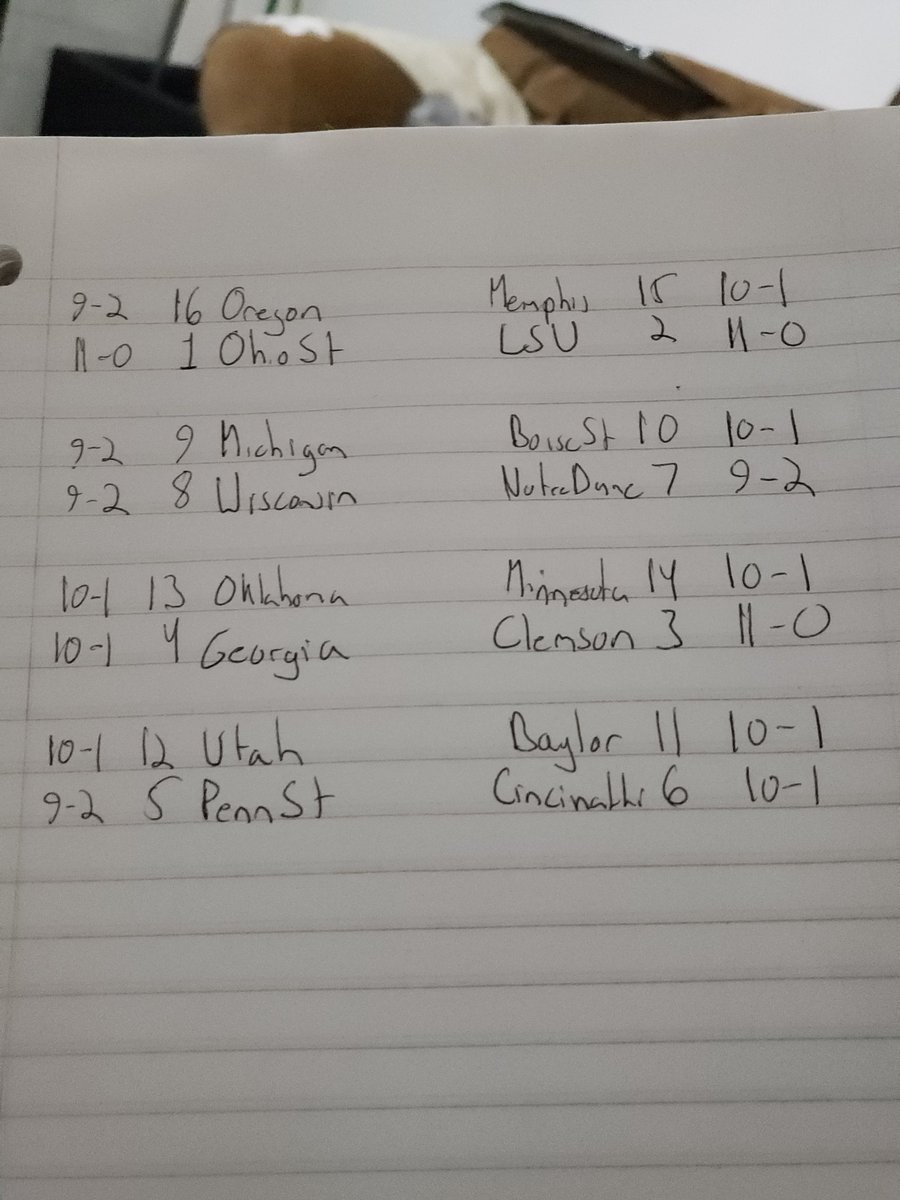 9-2 16 Oregon Memphis 15 10-1
11-0 1 Ohio St LSU 2 11-0
9-2 9 Michigan Boise St 10 10-1
9-2 8 Wisconsin Notre Dame 7 9-2
10-1 13 Oklahoma Minnesota 14 10-1
10-1 4 Georgia Clemson 3 11-0
10-1 12 Utah Baylor 11 10-1
9-2 5 Penn St Cincinatti 6 10-1